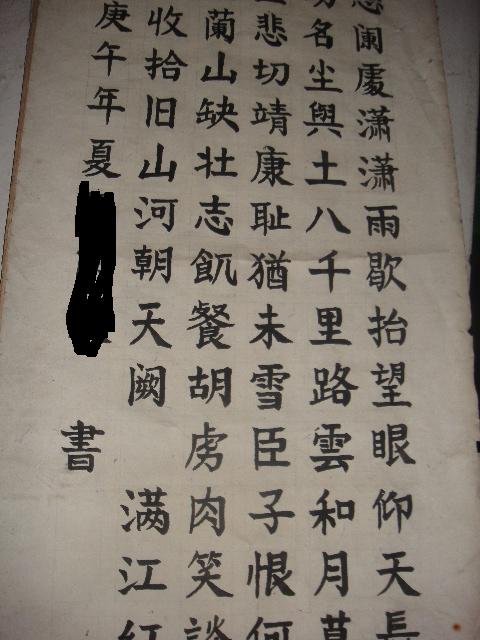 闌處潇潇雨歇抬望眼仰天長
名尘與土八千里路雲和月莫
悲切靖康耻猶未雪臣子恨何
蘭山缺壮志飢餐胡虏肉笑談
收拾旧山河朝天阙 满江红
庚午年夏 書